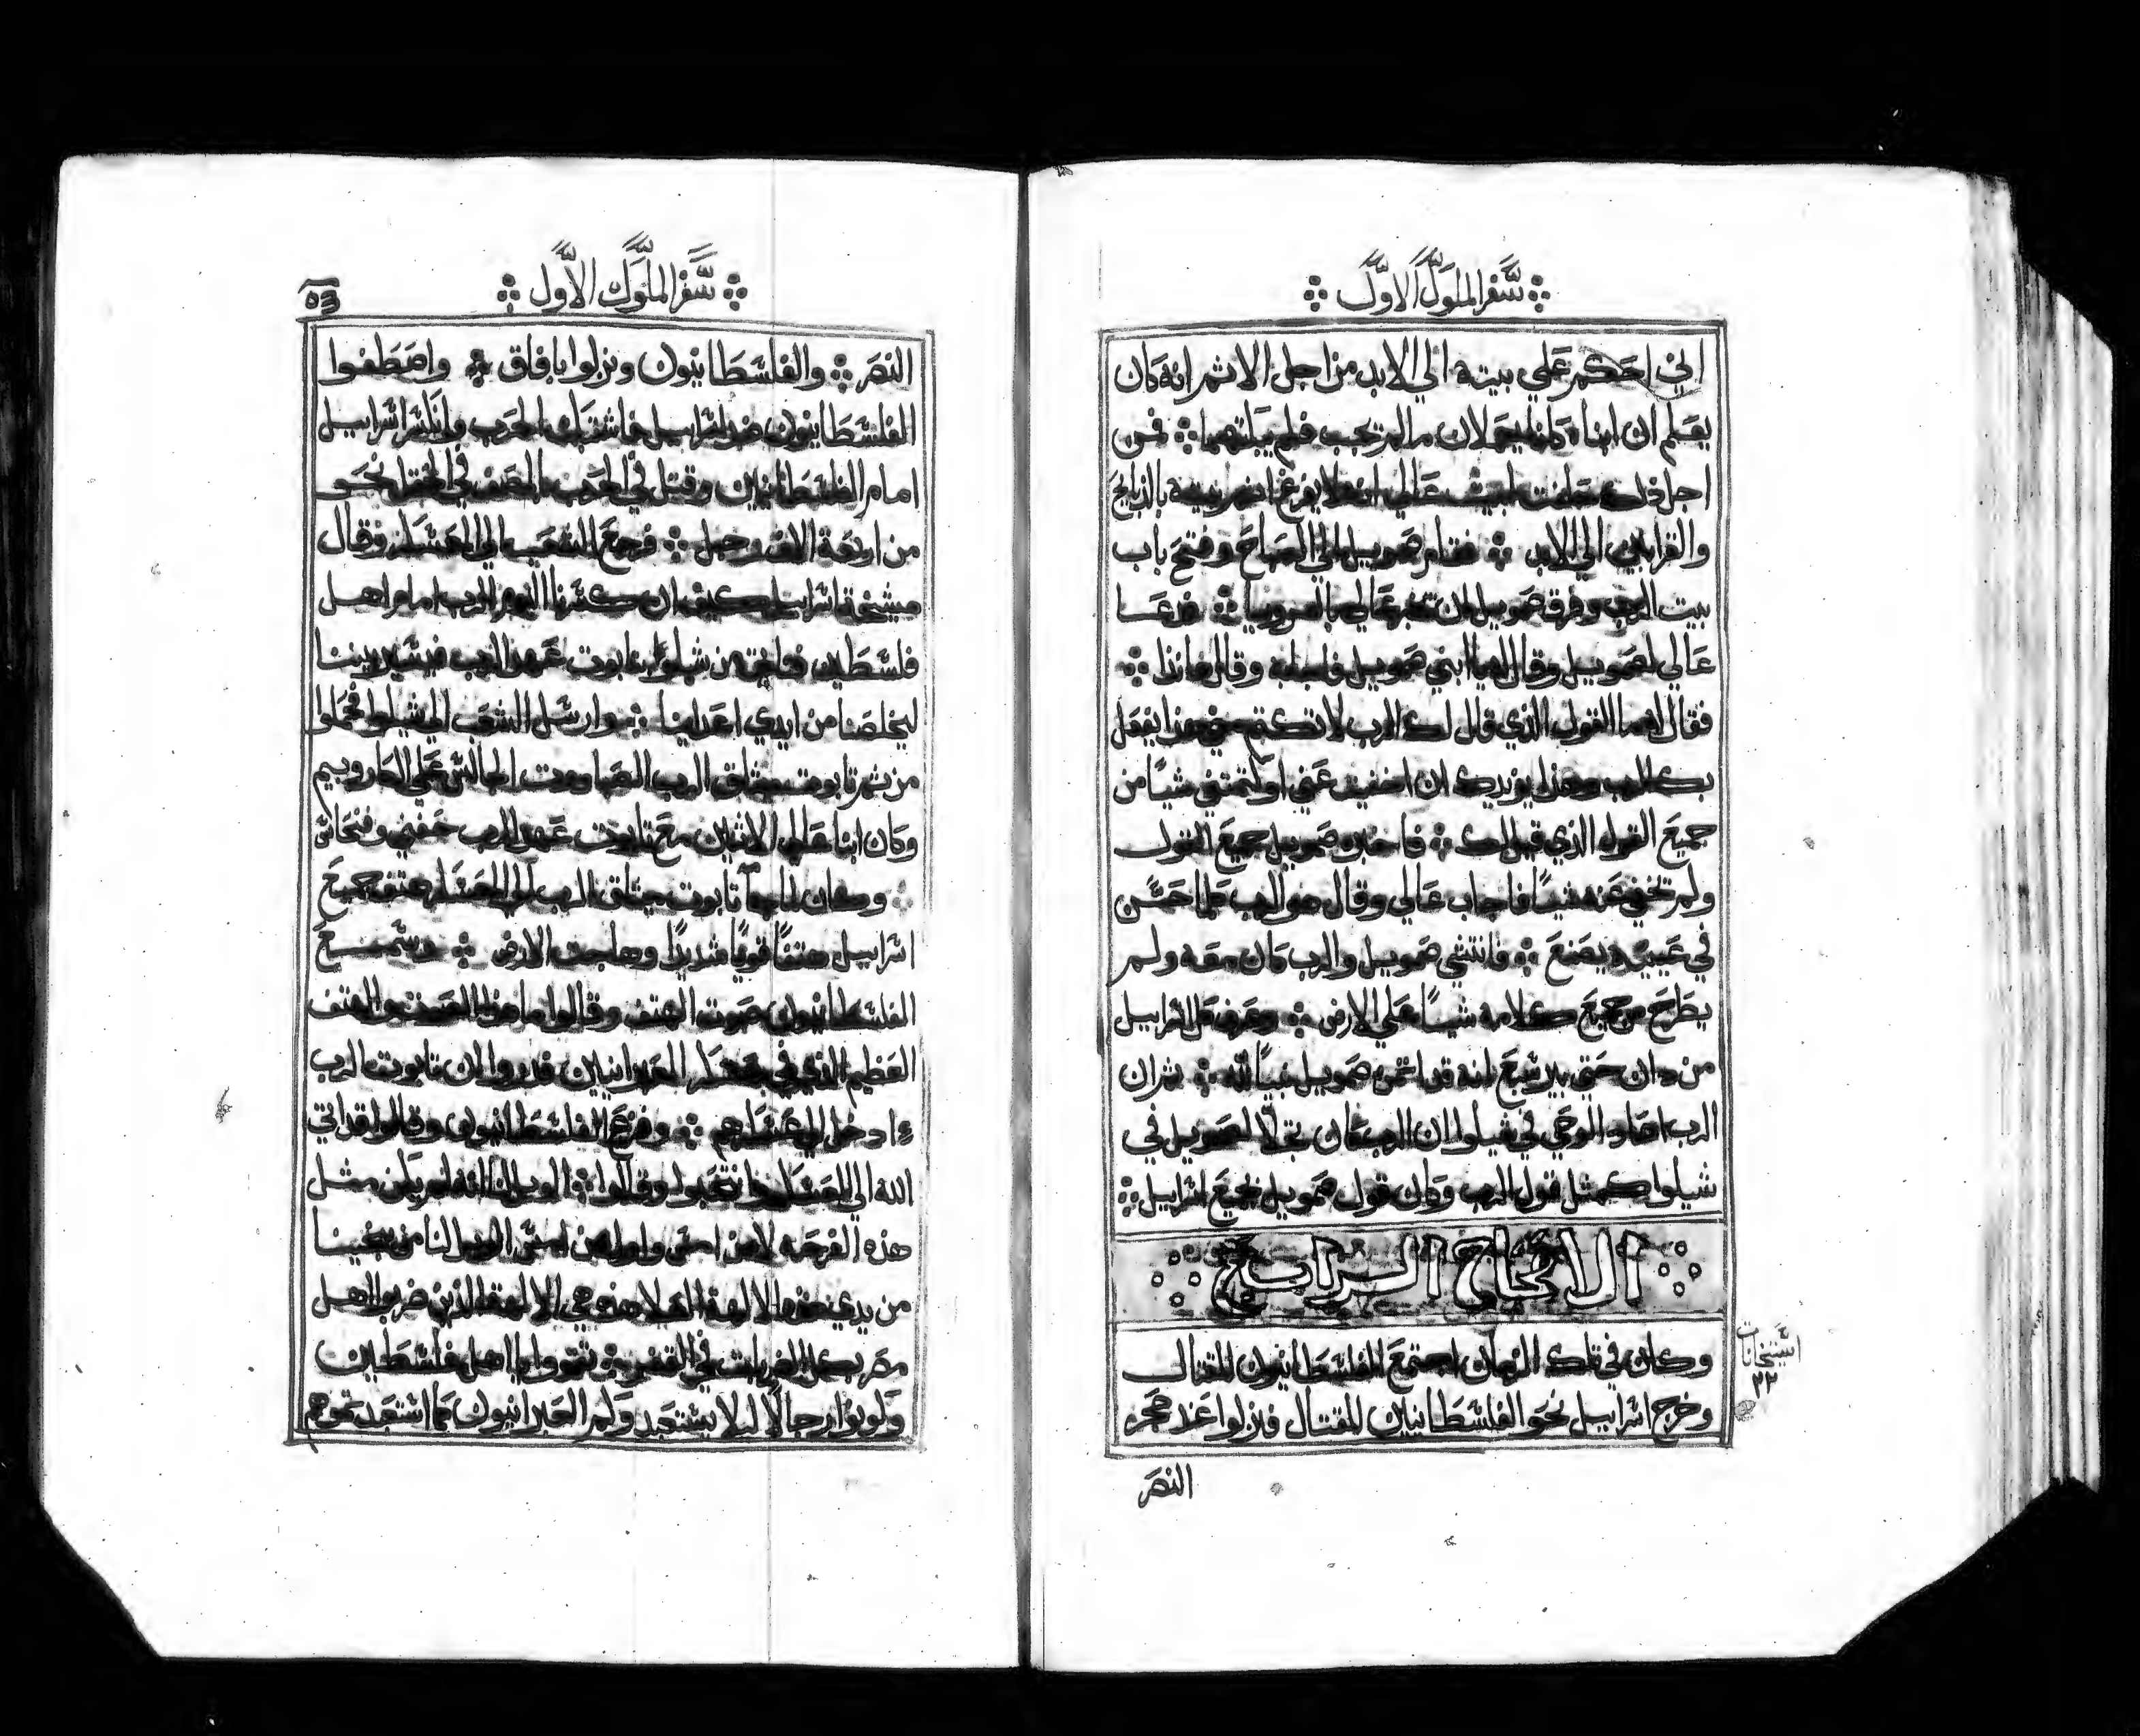 سفر الملوك الاول
اني احكم علي بيته الي الابد من اجل الاثم انه كان
يعلم ان ابناه كانا يعملان ما لم يجب فلم يبكتهما فمن
اجل ذلك حلفت لبيت عالي انه لا يغفر اثم بيته بالذبايح
والقرابين الي الابد فقام صمويل الي الصباح وفتح باب
بيت الرب وفرق صمويل ان يخبر عالي بالرويا فدعا
عالي لصمويل وقال له يا ابني صمويل وقال هانذا
فقال له ما القول الذي قال لك الرب لا تكتم عني هذا يفعل
بك الرب وهذا يزيدك ان اخفيت عني او كتمتني شيًا من
جميع القول الذي قيل لك فاخبره صمويل جميع القول
ولم يخفي عنه شيًا فاجاب عالي وقال هو الرب كلما حسن
في عينيه يصنع فانتشي صمويل والرب كان معه ولم
يطرح من جميع كلامه شيًا علي الارض وعرف كل اسراييل
من دان حتي بيرشبع انه قد اتمن صمويل نبيًا لله ثم ان
الرب اعاد الوحي في شيلوا ان الرب كان تجلا لصمويل في
شيلوا كمثل قول الرب وكان قول صمويل لجميع اسراييل
الاصحاح الرابع
وكان في تلك الزمان اجتمع الفلسطانيون للقتال
وخرج اسراييل نحو الفلسطانيين للقتال فنزلوا عند حجر
النصر
٢٢
سفر الملوك الاول
النصر والفلسطانيون ونزلوا بافاق واصطفوا
الفلسطانيون ضد اسراييل فاشتبك الحرب وانكسر اسراييل
امام الفلسطانيين وقتل في الحرب الصف في الحقل نحو
من اربعة الاف رجل فرجع الشعب الي المعسكر وقال
مشيخة اسراييل كيف ان كسرنا اليوم الرب امام اهل
فلسطين فناخد من شيلوا تابوت عهد الرب فيسير بيننا
ليخلصنا من ايدي اعداينا وارسل الشعب الي شيلوا فحملوا
من ثم تابوت ميثاق الرب الصاووت الجالس علي الكاروبيم
وكان ابنا عالي الاثنين مع تابوت عهد الرب حفني وفنحاس
وكان لما جا تابوت ميثاق الرب الي المعسكر هتف جميع
اسراييل هتفًا قويًا شديدًا وهاجت الارض وسمع
الفلسطانيون صوت الهتف وقالوا ما هذا الصوت والهتف
العظيم الذي في عسكر العبرانيين فدروا ان تابوت الرب
دخل الي عسكرهم وفزع الفلسطانيون وقالوا قد اتي
الله الي المعسكر فانتحبوا وقالوا الويل لنا انه لم يكن مثل
هذه الفرحه لامن امس ولا من امس الويل لنا من ينجينا
من يدي هذه الالهة هذه هي الالهة الذين ضربوا اهل
مصر بكل الضربات في القفر تقووا يا اهل فلسطين
وكونوا رجالًا ليلا يستعبدوكم العبرانيون كما استعبدتموهم